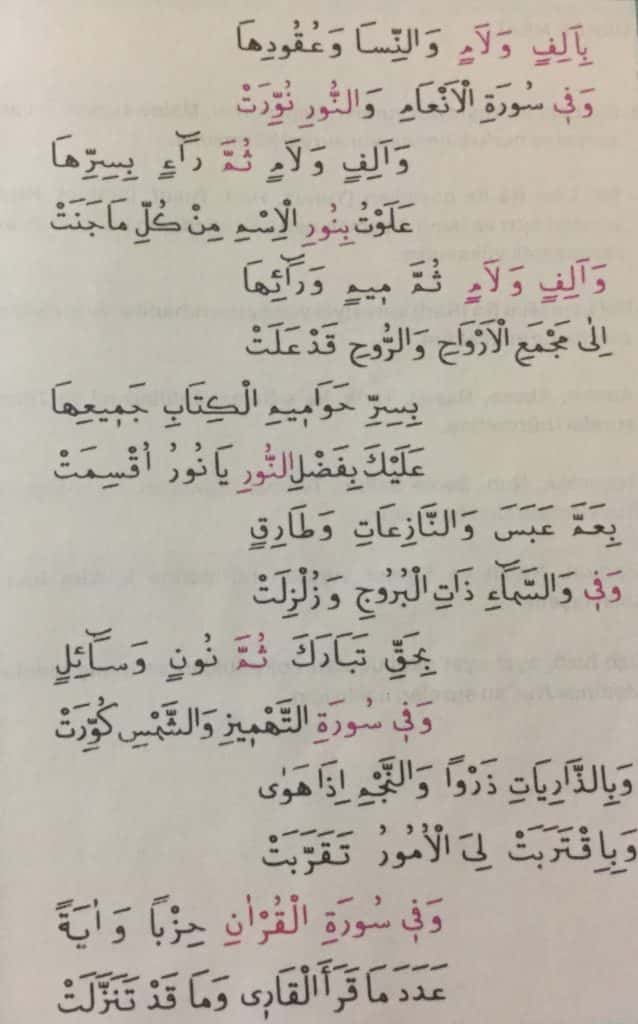 بِاَلِفٍ وَلَامٍ وَالنِّسَا وَعُقُودِهَا
وَفِي سُورَةِ الْاَنْعَامِ وَالنُّورِ نُوِّرَتْ
وَاَلِفٍ وَلَامٍ ثُمَّ رَآءٍ بِسِرِّهَا
عَلَوْتُ بِنُورِ الْاِسْمِ مِنْ كُلِّ مَاجَنَتْ
وَاَلِفٍ وَلَامٍ ثُمَّ مِيمٍ وَرَآئِهَا
اِلٰى مَجْمَعِ الْاَرْوَاحِ وَالرُّوحِ قَدْعَلَتْ
بِسِرِّ حَوَامِيمِ الْكِتَابِ جَمِيعِهَا
عَلَيْكَ بِفَضْلِ النُّورِ يَانُورُ اُقْسِمَتْ
بِعَمَّ عَبَسَ وَالنَّازِعَاتِ وَطَارِقٍ
وَفِي وَالسَّمَآءِ ذَاتِ الْبُرُوجِ وَزُلْزِلَتْ
بِحَقِّ تَبَارَكَ ثُمَّ نُونٍ وَسَآئِلٍ
وَفِي سُورَةِ التَّهْمِيزِ وَالشَّمْسِ كُوِّرَتْ
وَبِالذَّارِيَاتِ ذَرْوًا وَالنَّجْمِ اِذَا هَوٰى
وَبِاِقْتَرَبَتْ لِيَ الْاُمُورُ تَقَرَّبَتْ
وَفِي سُورَةِ الْقُرْاٰنِ حِزْبًا وَاٰيَةً
عَدَدَ مَا قَرَأَ الْقَارِي وَمَا قَدْ تَنَزَّلَتْ